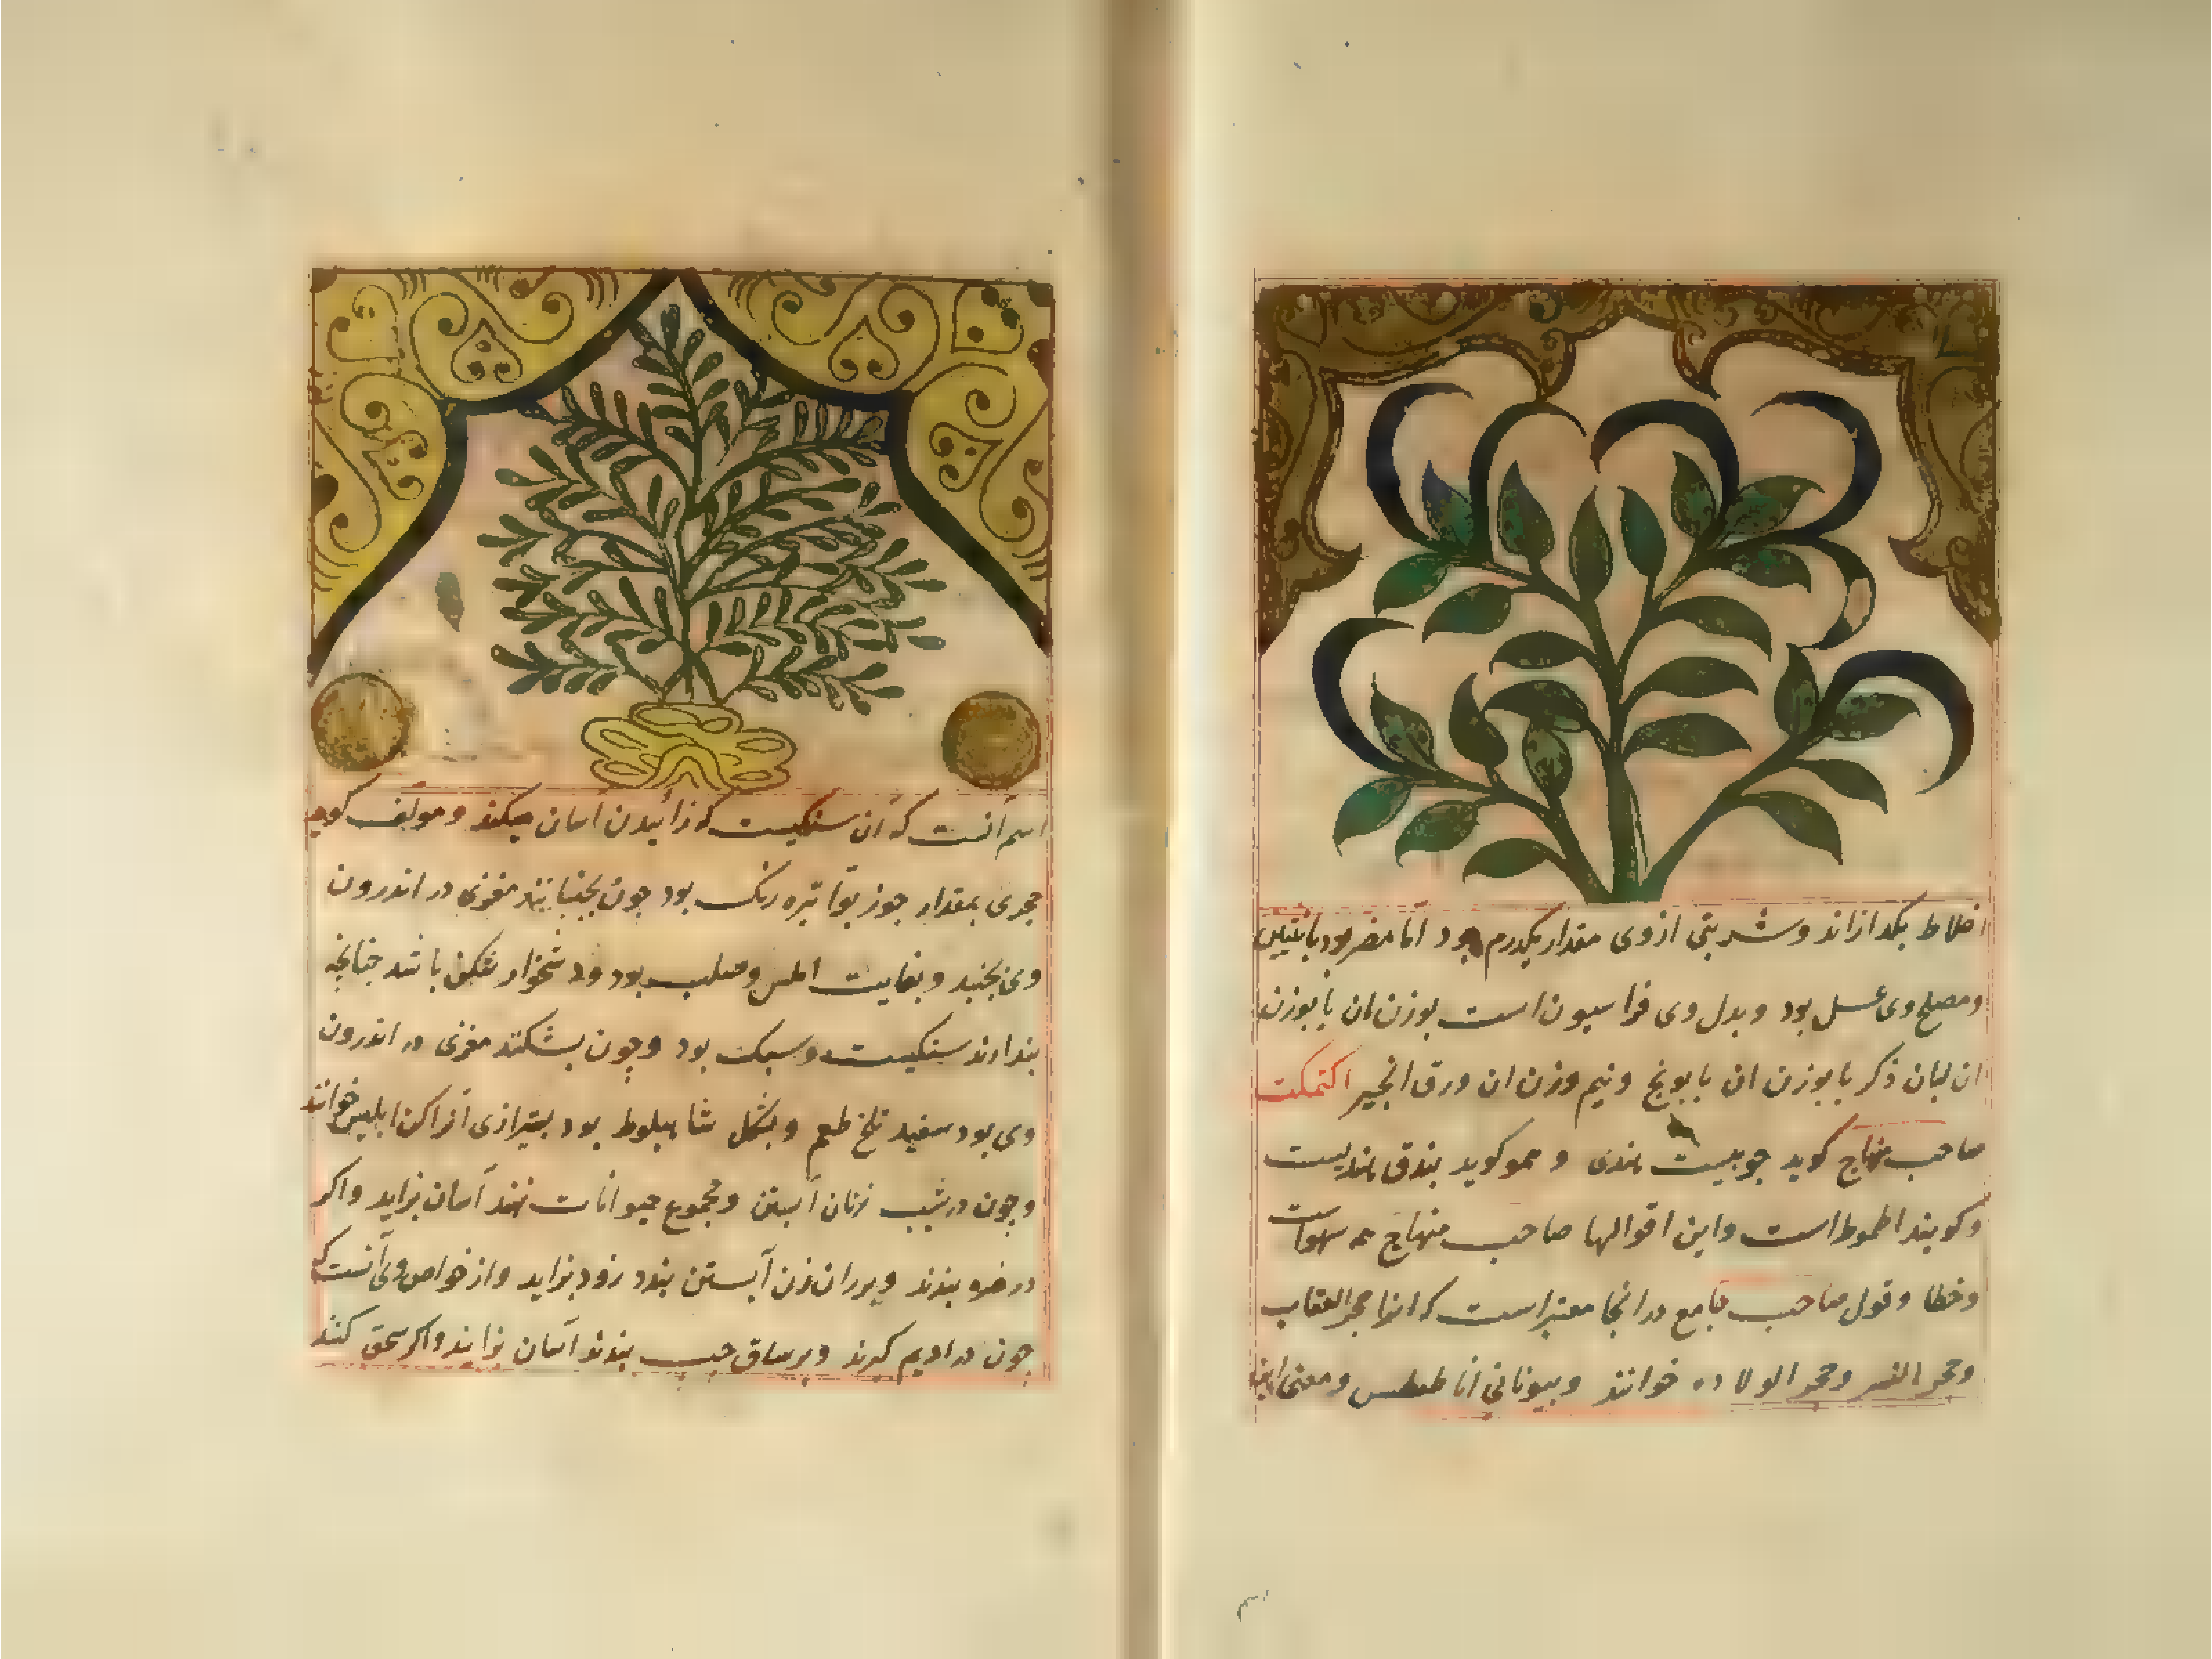 اخلاط بکدازاند و شربتی ازوی مقدار یکدرم بود اما مضر بود بانثیین
و مصلح وی عسل بود و بدل وی فراسیون است بوزن ان یا بوزن
ان لبان ذکر یا بوزن ان بابونج و نیم وزن ان ورق انجیر اکتمکت
صاحب منهاج کوید چوبیست هندی و هموکوید بندق هندیست
وکویند اطموط است و این اقوالها صاحب منهاج همه سهوست
وخطا و قول صاحب جامع در انجا معتبر است که انرا حجر العقاب
وحجر النسر وحجر الولاده خوانند و بیونانی اناطیطس و معنی این
اسم
اسم آنست که آن سنکیست که زائیدن آسان میکند و مولف کوید
حجری بمقدار جوز بوا تیره رنک بود چون بجنبانند مغزی در اندرون
وی بجنبد و بغایت املس و صلب بود و دشخوار شکن باشد چنانچه
بندارند سنکیست و سبک بود و چون بشکنند مغزی در اندرون
وی بود سفید تلخ طعم و بشکل شاهبلوط بود بشیرازی آنرا کن ابلیس خوانند
وچون در شیب زنان آبستن و مجموع حیوانات نهند آسان بزاید و اکر
در خرقه بندند و بر ران زن آبستن بندد زود بزاید و از خواص وی آنست که
چون در ادیم کیرند و بر ساق چب بندند آسان بزاند و اکر سحق کنند